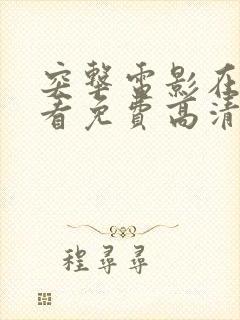 突擊電影在
看免費高清
程尋尋